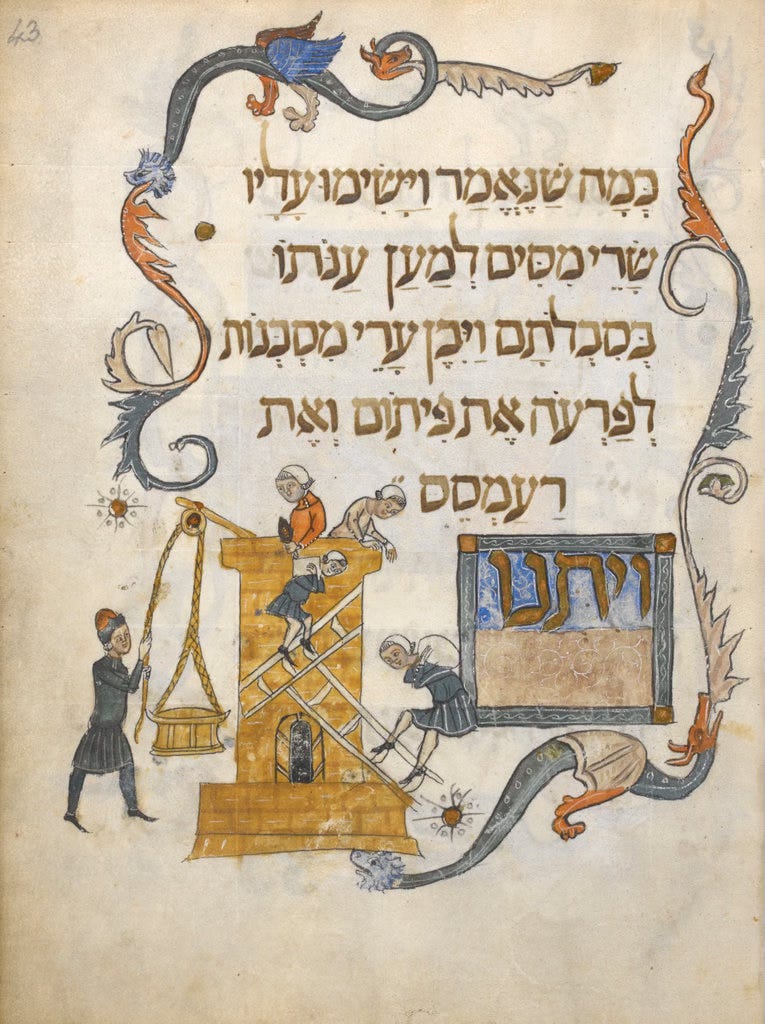 43
כְּמָה שֶׁנֶּאֱמַר וַיָּשִׂימוּ עָלָיו
שָׂרֵי מִסִּים לְמַעַן עַנּתוֹ
בְּסִבְלֹתָם וַיִּבֶן עָרֵי מִסְכְּנוֹת
לְפַרְעֹה אֶת פִּיתוֹם וְאֶת
רַעַמְסֵס
ויתנו